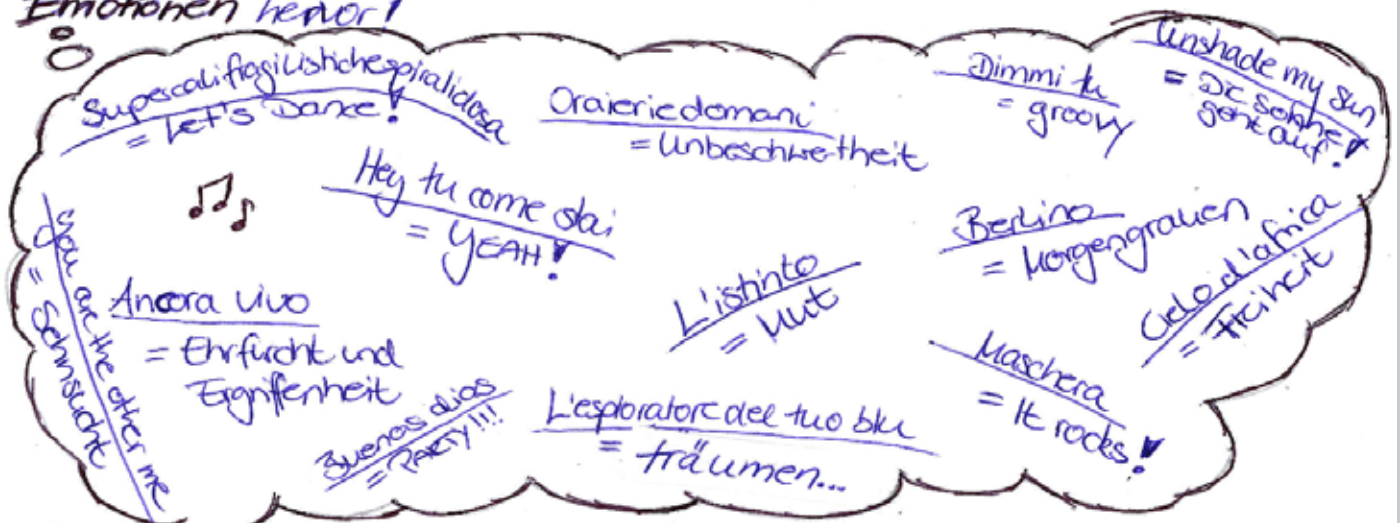 Emotionen hervor!
Supercalifragilistichespiralidosa
= Let's Dance!
Oraieriedomani
= Unbeschwertheit
Dimmi tu
= groovy
Unshade my sun
= Die Sonne
geht auf!
Hey tu come stai
= YEAH!
Berlino
= Morgengrauen
Cielo d'africa
= Freiheit
You are the other me
= Sehnsucht
Ancora vivo
= Ehrfurcht und
Ergriffenheit
L'istinto
= Mut
Maschera
= It rocks!
Buenos dias
= PARTY!!!
L'esploratore del tuo blu
= träumen...